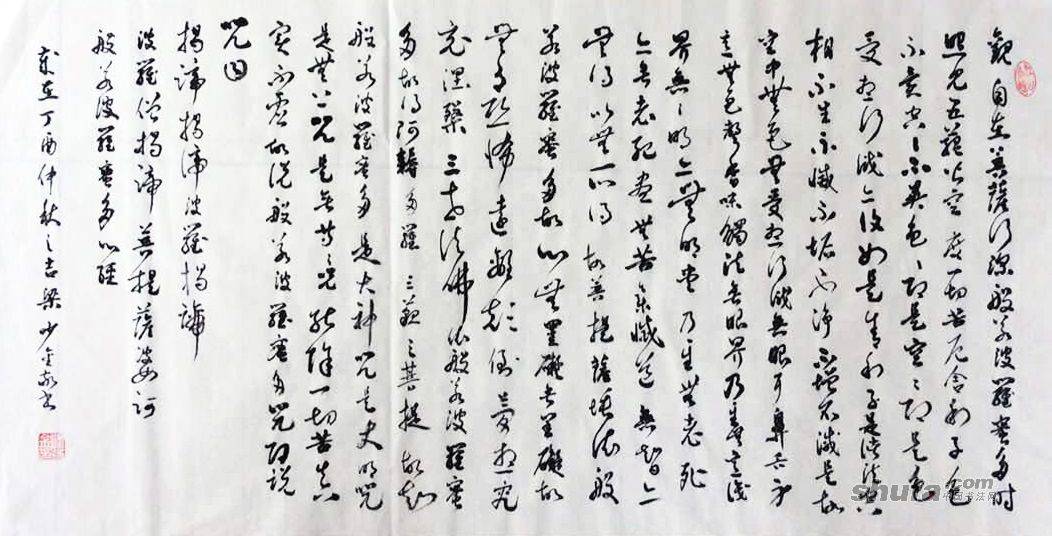 觀自在菩薩行深般若波羅蜜多時
照見五蘊皆空度一切苦厄舍利子色
不異空空不異色色即是空空即是色
受想行識亦復如是舍利子是諸法空
相不生不滅不垢不淨不增不減是故
空中無色無受想行識無眼耳鼻舌身
意無色聲香味觸法無眼界乃至無意識
界無無明亦無無明盡乃至無老死
亦無老死盡無苦集滅道無智亦
無得以無所得故菩提薩埵依般
若波羅蜜多故心無罣礙無罣礙故
無有恐怖遠離顛倒夢想究
竟涅槃三世諸佛依般若波羅蜜
多故得阿耨多羅三藐三菩提故知
般若波羅蜜多是大神咒是大明咒
是無上咒是無等等咒能除一切苦真
實不虛故說般若波羅蜜多咒即說
咒曰
揭諦揭諦波羅揭諦
波羅僧揭諦菩提薩婆訶
般若波羅蜜多心經
歲在丁酉仲秋之吉梁少敬書
shufa.com
中国书法网